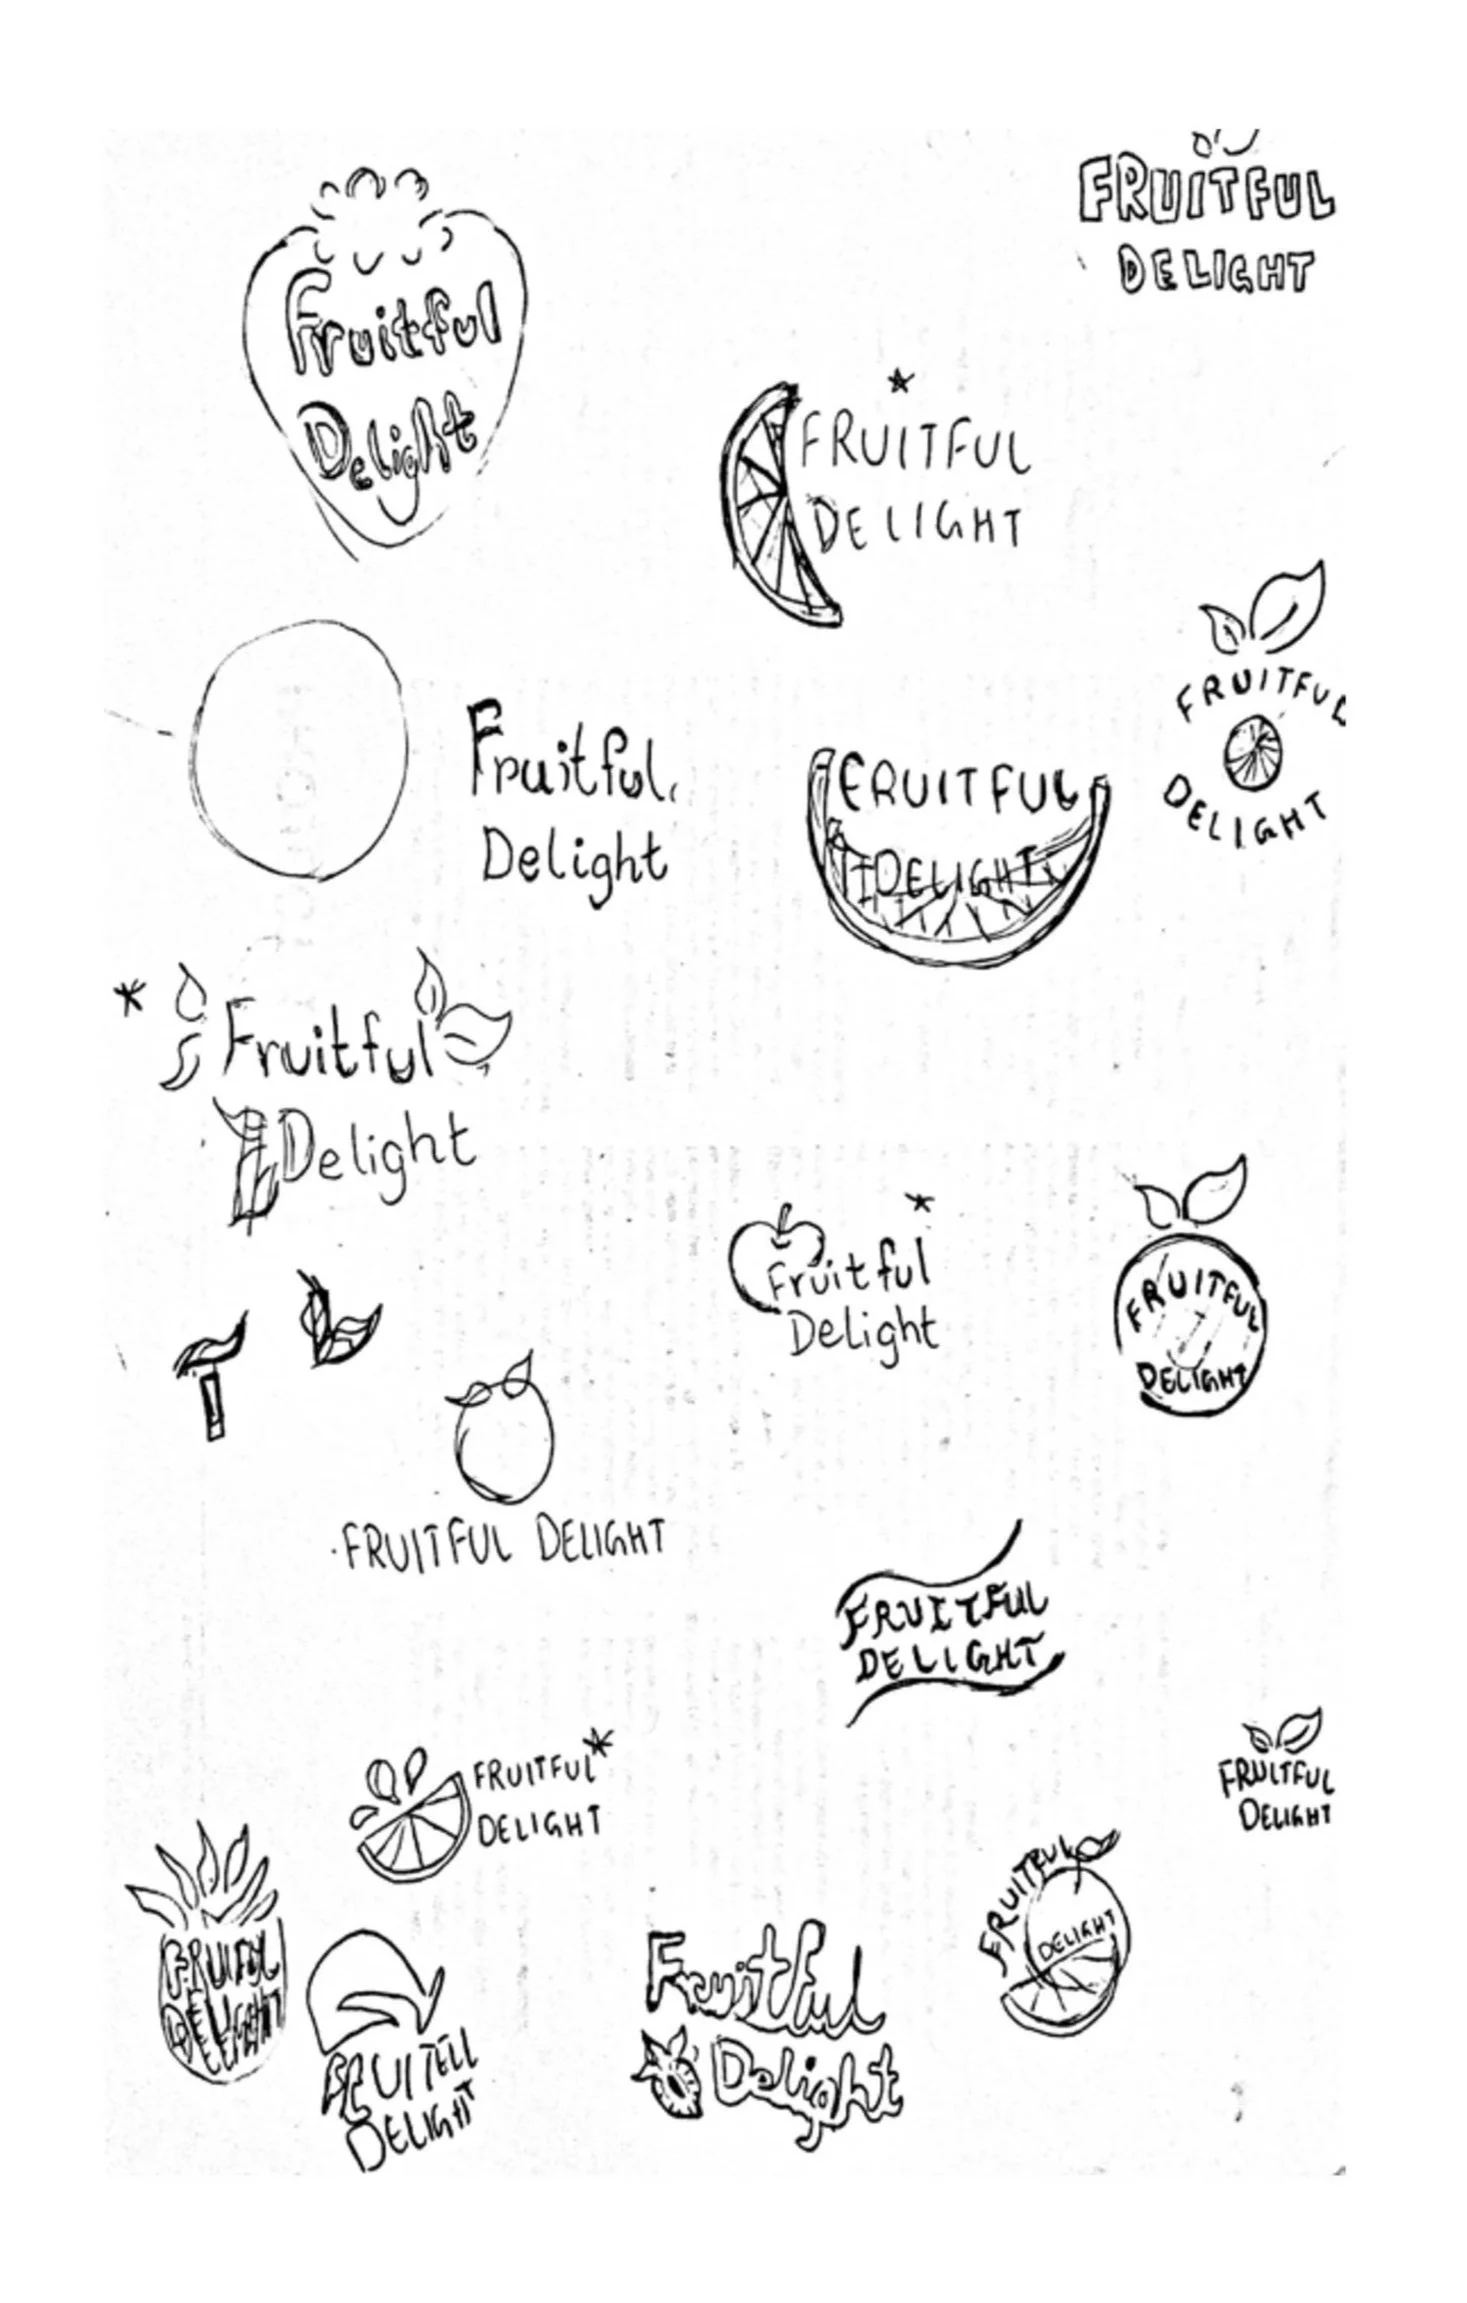 FRUITFUL
DELIGHT
Fruitful
Delight
FRUITFUL
DELIGHT
FRUITFUL
DELIGHT
Fruitful
Delight
FRUITFUL
DELIGHT
Fruitful
Delight
Fruitful
Delight
FRUITFUL
DELIGHT
FRUITFUL DELIGHT
FRUITFUL
DELIGHT
FRUITFUL
DELIGHT
FRUITFUL
DELIGHT
FRUITFUL
DELIGHT
DELIGHT
DELIGHT
Fruitful
Delight